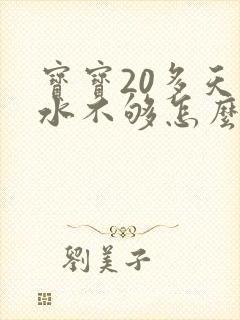 寶寶20多天
水不够怎麽
劉美子